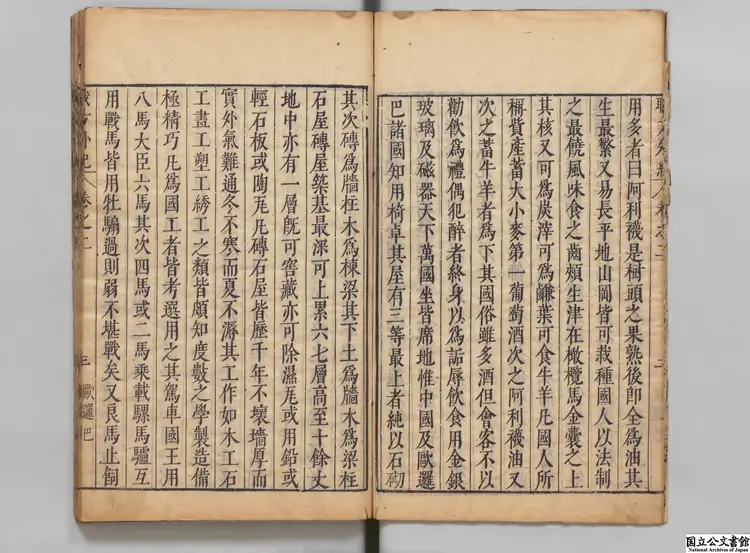 職方外紀 卷之二 二
用多者曰阿利襪是樹頭之果熟後卽全爲油其
生最繁又易長平地山岡皆可栽種國人以法制
之最饒風味食之齒頰生津在橄欖馬金囊之上
其核又可爲炭滓可爲鹻葉可食牛羊凡國人所
稱貲産蓄大小麥第一葡萄酒次之阿利襪油又
次之蓄牛羊者爲下其國俗雖多酒但會客不以
勸飲爲禮偶犯醉者終身以爲詬辱飲食用金銀
玻璃及磁器天下萬國坐皆席地惟中國及歐邏
巴諸國知用椅卓其屋有三等最上者純以石砌
其次磚爲牆柱木爲棟梁其下土爲牆木爲梁柱
石屋磚屋築基最深可上累六七層高至十餘丈
地中亦有一層旣可窖藏亦可除濕瓦或用鉛或
輕石板或陶瓦凡磚石屋皆歷千年不壞墻厚而
實外氣難通冬不寒而夏不溽其工作如木工石
工畫工塑工綉工之類皆頗知度數之學製造備
極精巧凡爲國工者皆考選用之其駕車國王用
八馬大臣六馬其次四馬或二馬乘載騾馬驢互
用戰馬皆用牡騸過則弱不堪戰矣又良馬止飼
職方外紀 卷之二 三 歐邏巴
国立公文書館
National Archives of Japan